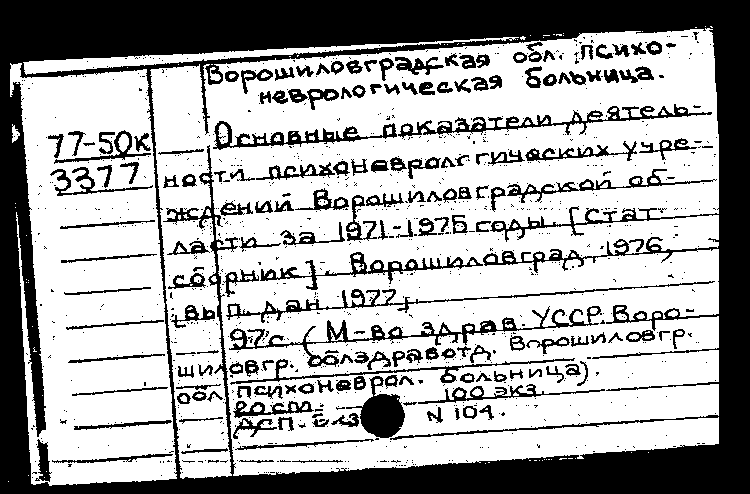 Ворошиловградская обл. психо-
неврологическая больница.
77-50к
3377
Основные показатели деятель-
ности психоневрологических учре-
ждений Ворошиловградской об-
ласти за 1971-1975 годы. [Стат.
сборник]. Ворошиловград, 1976,
[вып. дан. 1977].
97с. (М-во здрав. УССР. Воро-
шиловгр. облздравотд. Ворошиловгр.
обл. психоневрол. больница).
20 см. 100 экз.
ДСП. N 104.